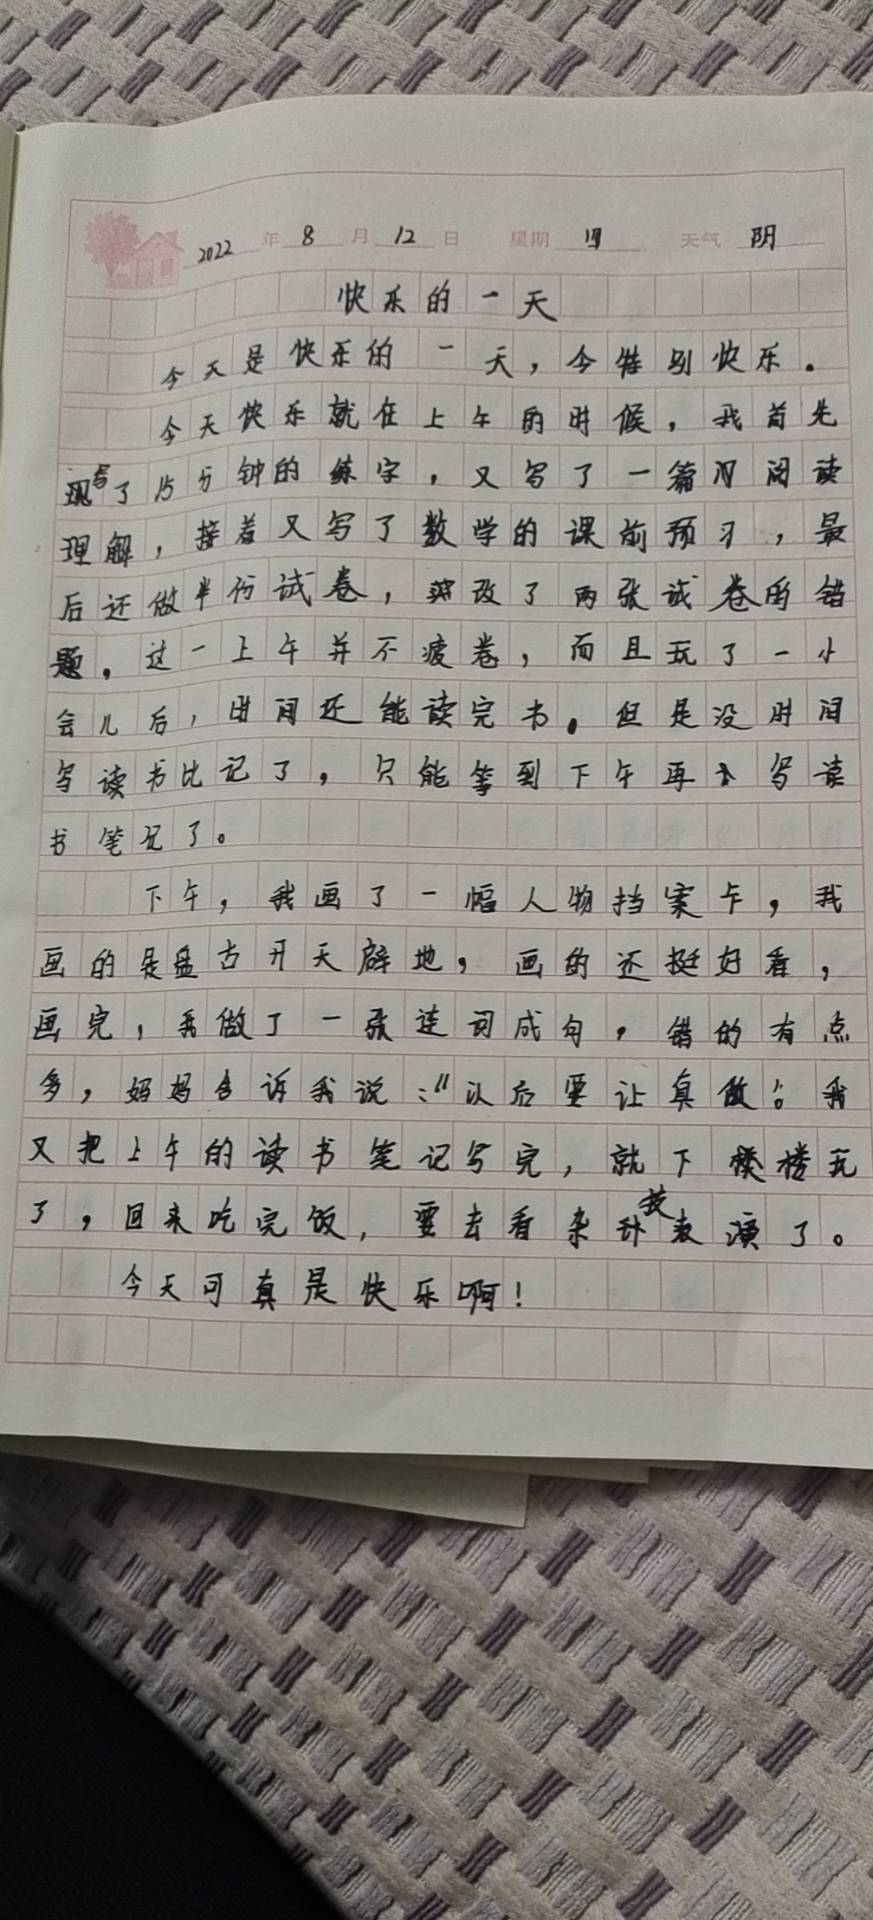 2022年8月12日 星期四 天气 阴
快乐的一天
今天是快乐的一天，今特别快乐。
今天快乐就在上午的时候，我首先
写了15分钟的练字，又写了一篇阅读
理解，接着又写了数学的课前预习，最
后还做半份试卷，改了两张试卷的错
题。这一上午并不疲卷，而且玩了一小
会儿后，时间还能读完书。但是没时间
写读书比记了，只能等到下午再写读
书笔记了。
下午，我画了一幅人物挡案卡，我
画的是盘古开天辟地，画的还挺好看，
画完，我做了一张连词成句，错的有点
多，妈妈告诉我说：“以后要让真做。”我
又把上午的读书笔记写完，就下楼玩
了，回来吃完饭，要去看杂技表演了。
今天可真是快乐啊！